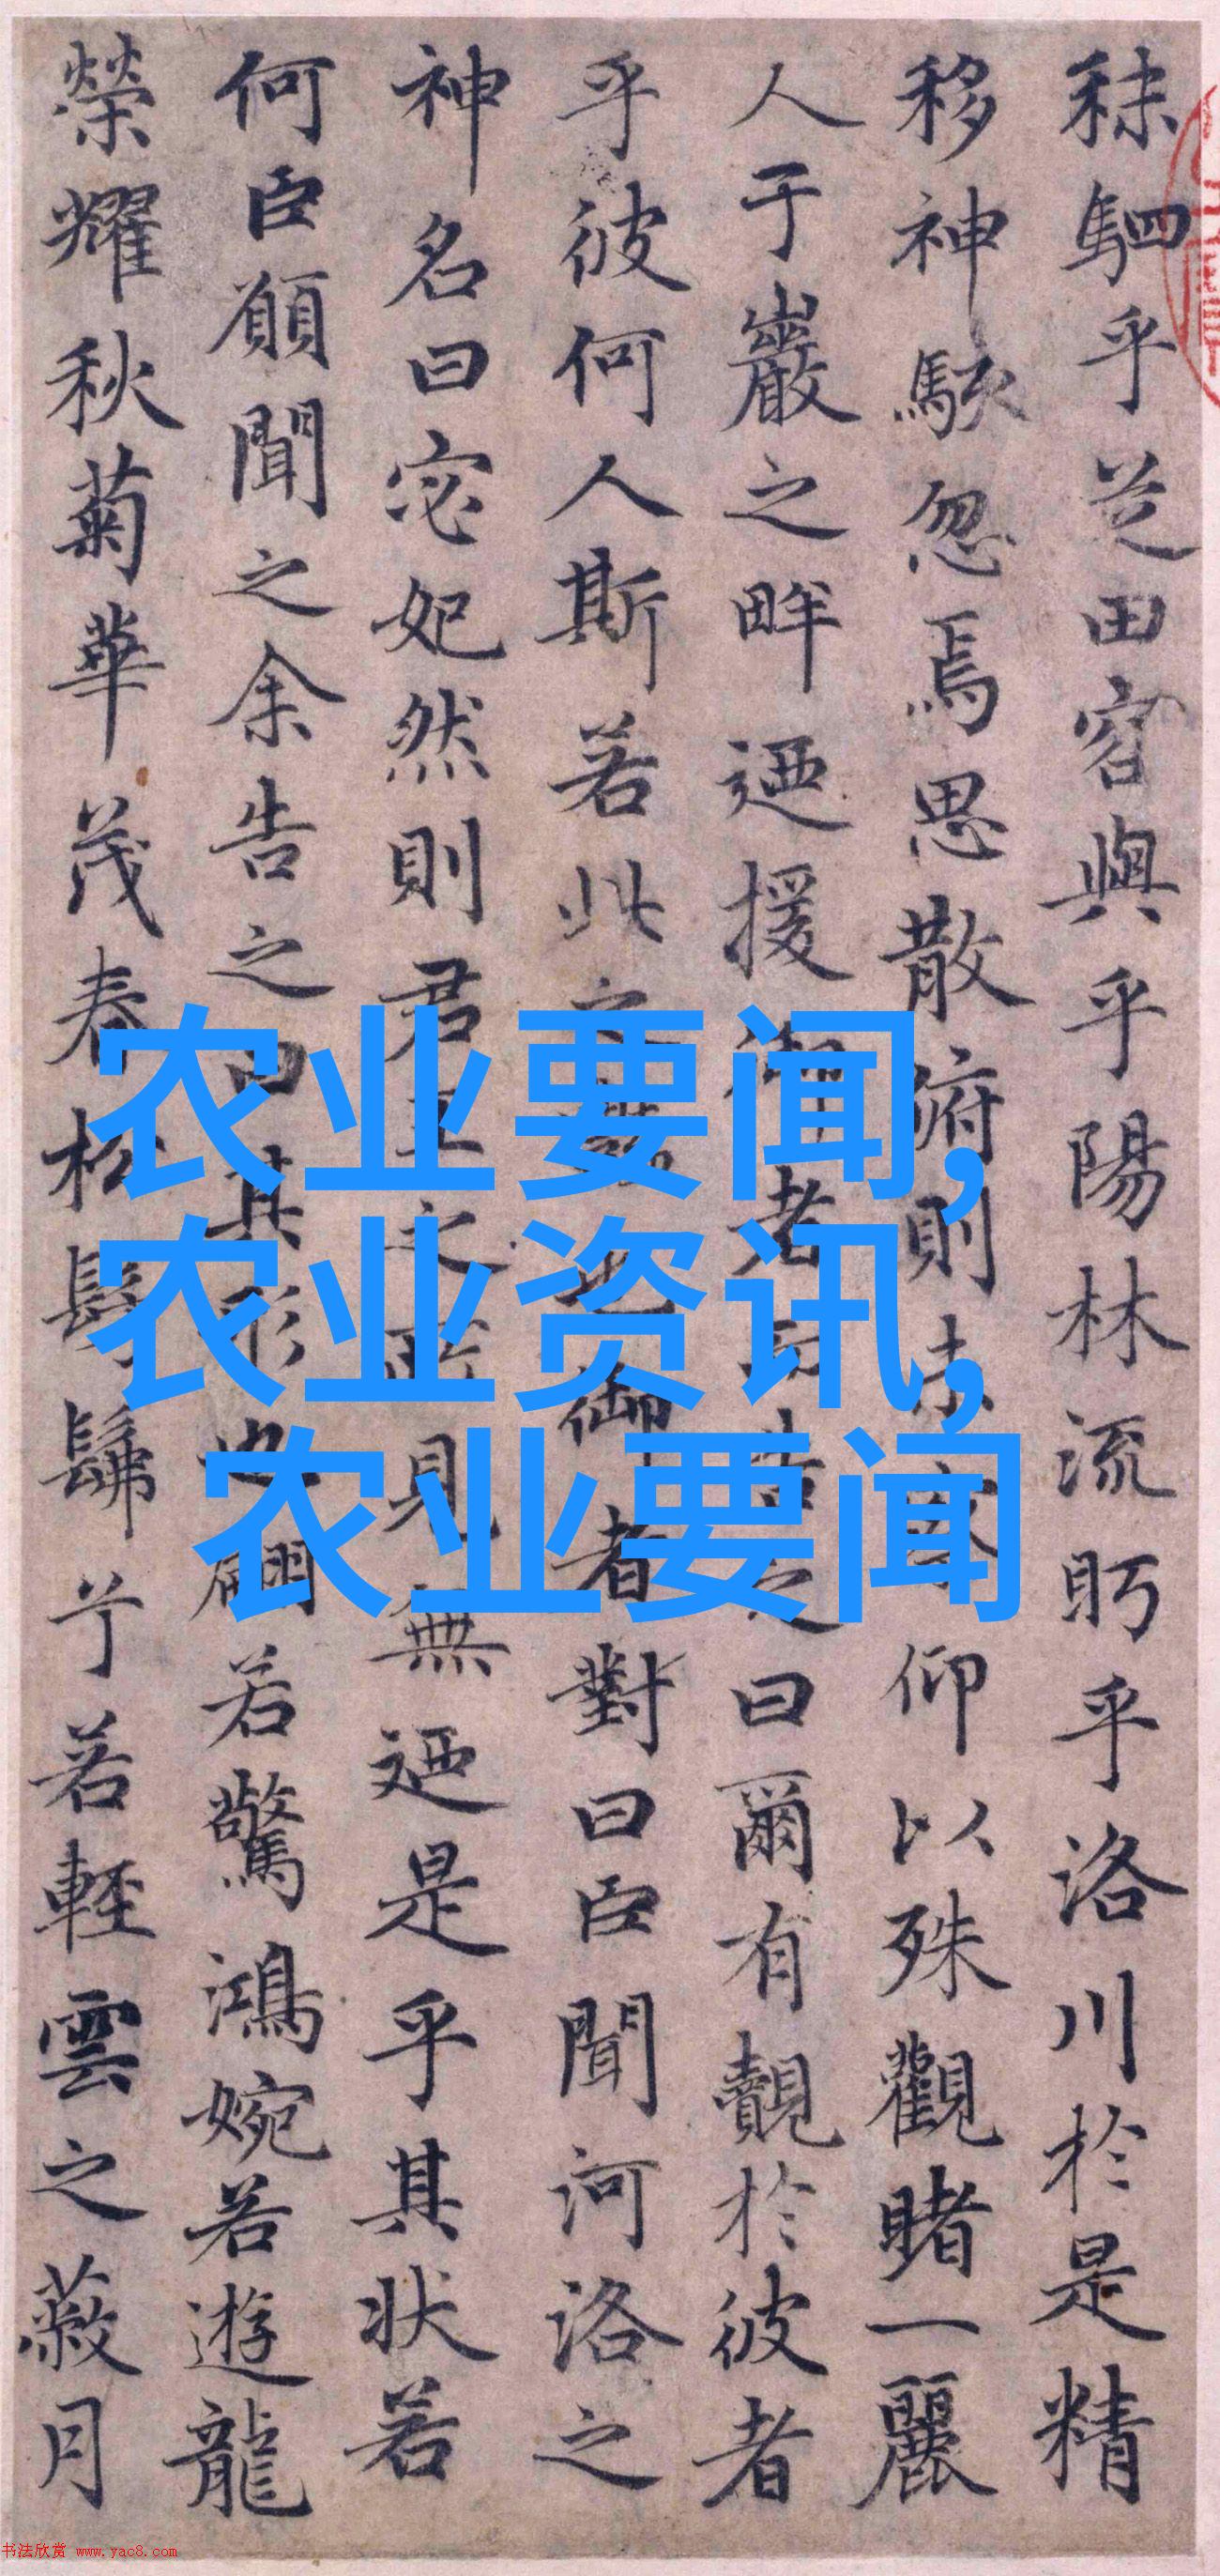 秣駟乎芝田容與乎陽林流眄乎洛川於是精
移神駭忽焉思散俯則未察仰以殊觀睹一麗
人于巖之畔迺援御者而告之曰爾有覿於彼者
乎彼何人斯若此之豔也御者對曰臣聞河洛之
神名曰宓妃然則君王之所見無迺是乎其狀若
何臣願聞之余告之曰其形也翩若驚鴻婉若遊龍
榮耀秋菊華茂春松髣髴兮若輕雲之蔽月
农业要闻,
农业资讯,
农业要闻
书法欣赏 www.yac8.com